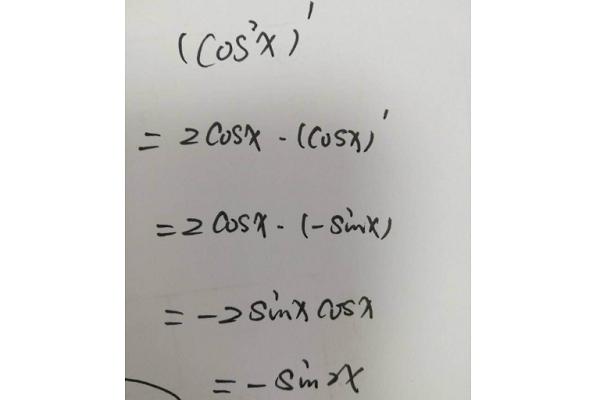 (cos²x)'
= 2cosx · (cosx)'
= 2cosx · (-sinx)
= -2sinx cosx
= -sin2x